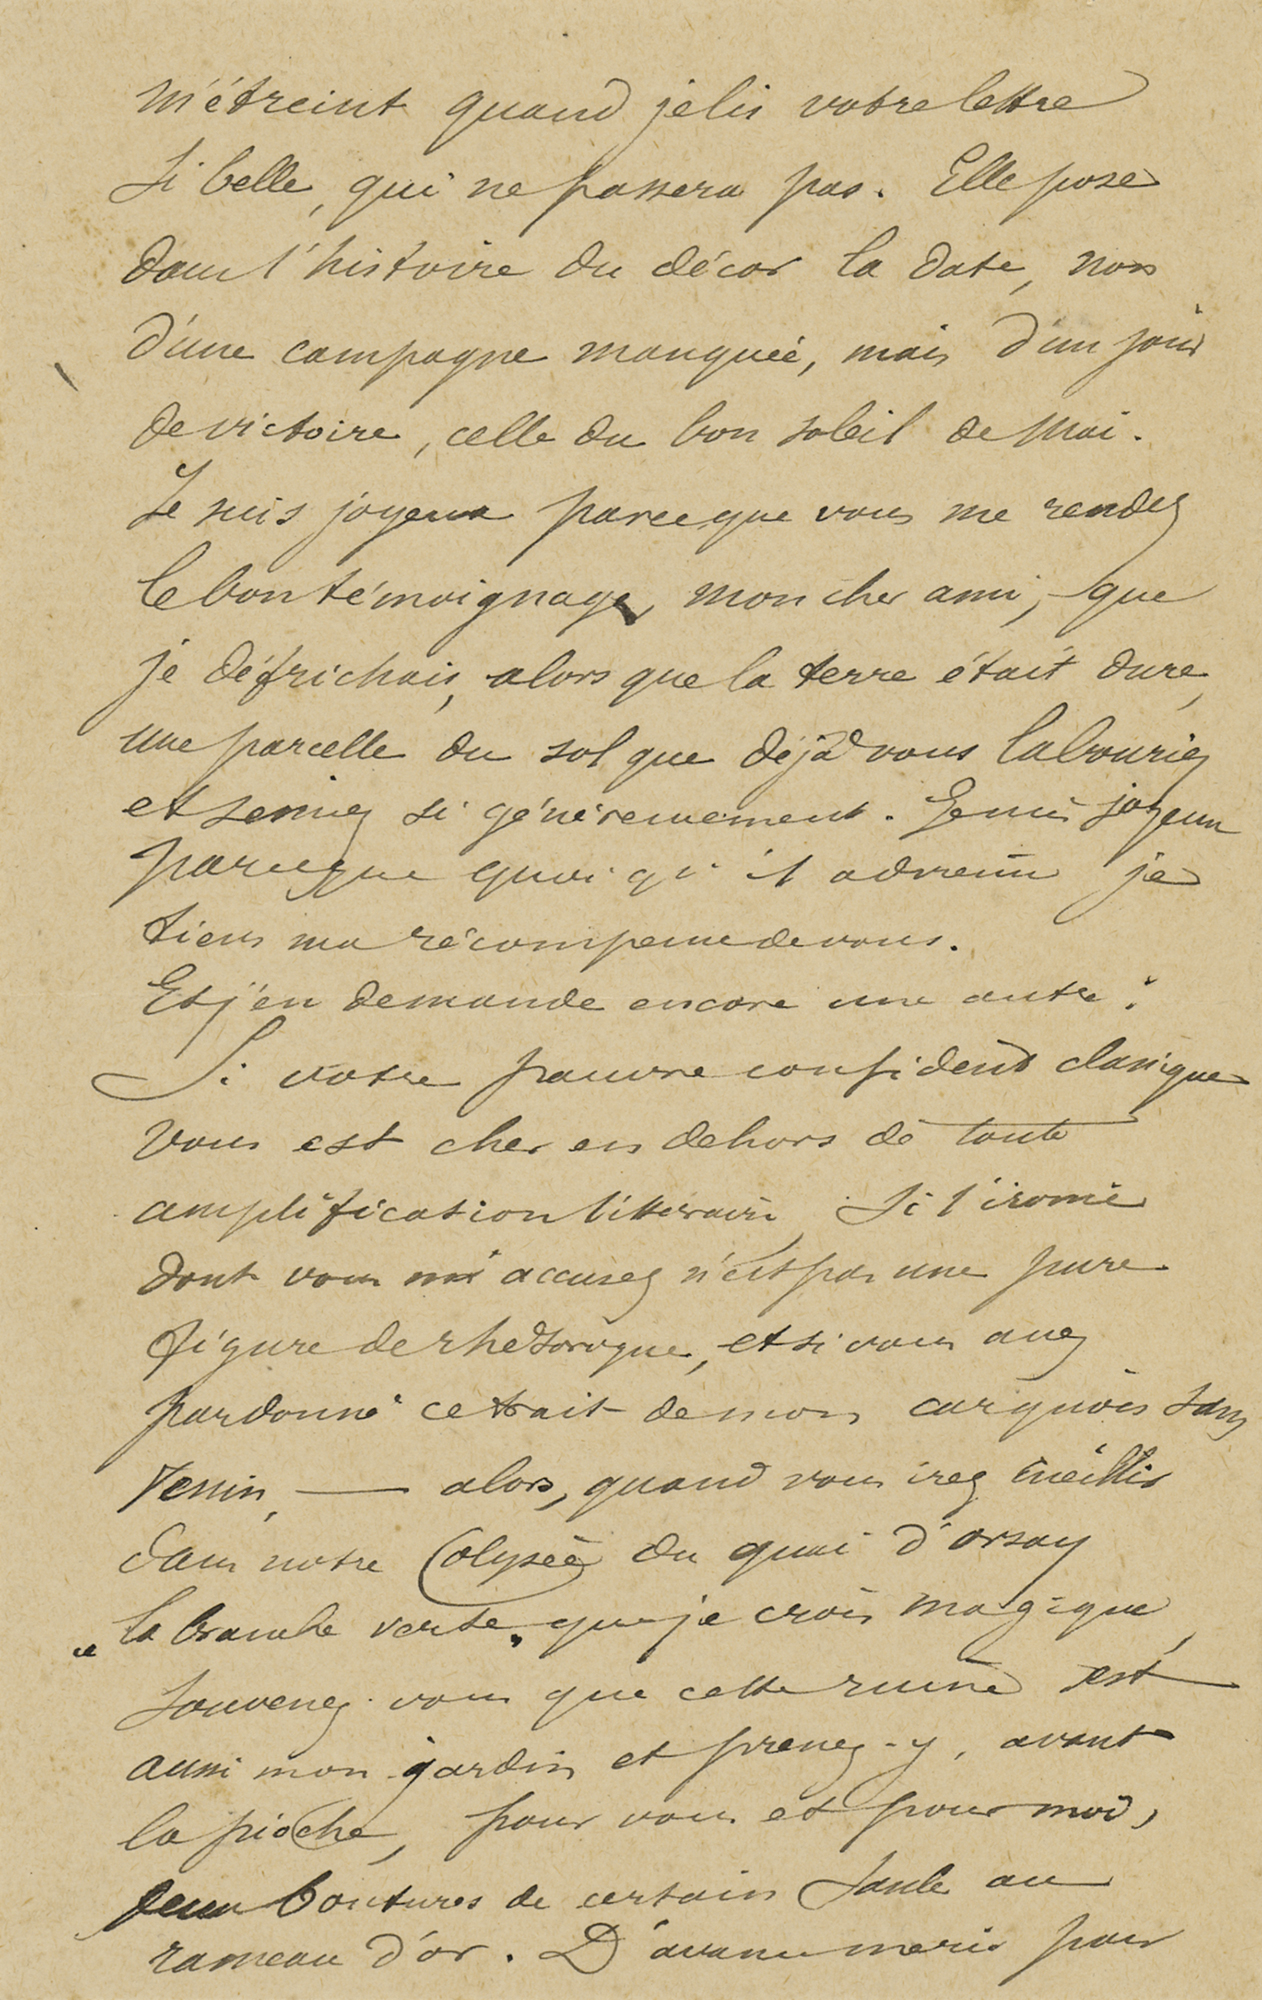 m'étreint quand je lis votre lettre
si belle, qui ne passera pas. Elle pose
dans l'histoire du décor la date, non
d'une campagne manquée, mais d'un jour
de victoire, celle du bon soleil de Mai.
Je suis joyeux parceque vous me rendez
le bon témoignage, mon cher ami, que
je défrichais, alors que la terre était dure,
une parcelle du sol que déjà vous labouriez
et semiez si généreusement. Je suis joyeux
parceque quoi qu'il advienne je
tiens ma récompense de vous.
Et j'en demande encore une autre :
Si votre pauvre confident classique
vous est cher en dehors de toute
amplification littéraire, si l'ironie
dont vous m'accusez n'est pas une pure
figure de rhétorique, et si vous avez
pardonné ce trait de mon carquois sans
venin, — alors, quand vous irez cueillir
dans notre Colysée du quai d'orsay
"la branche verte" que je crois magique,
souvenez-vous que cette ruine est
aussi mon jardin et prenez-y, avant
la pioche, pour vous et pour moi,
deux boutures de certain saule au
rameau d'or. D'avance merci pour